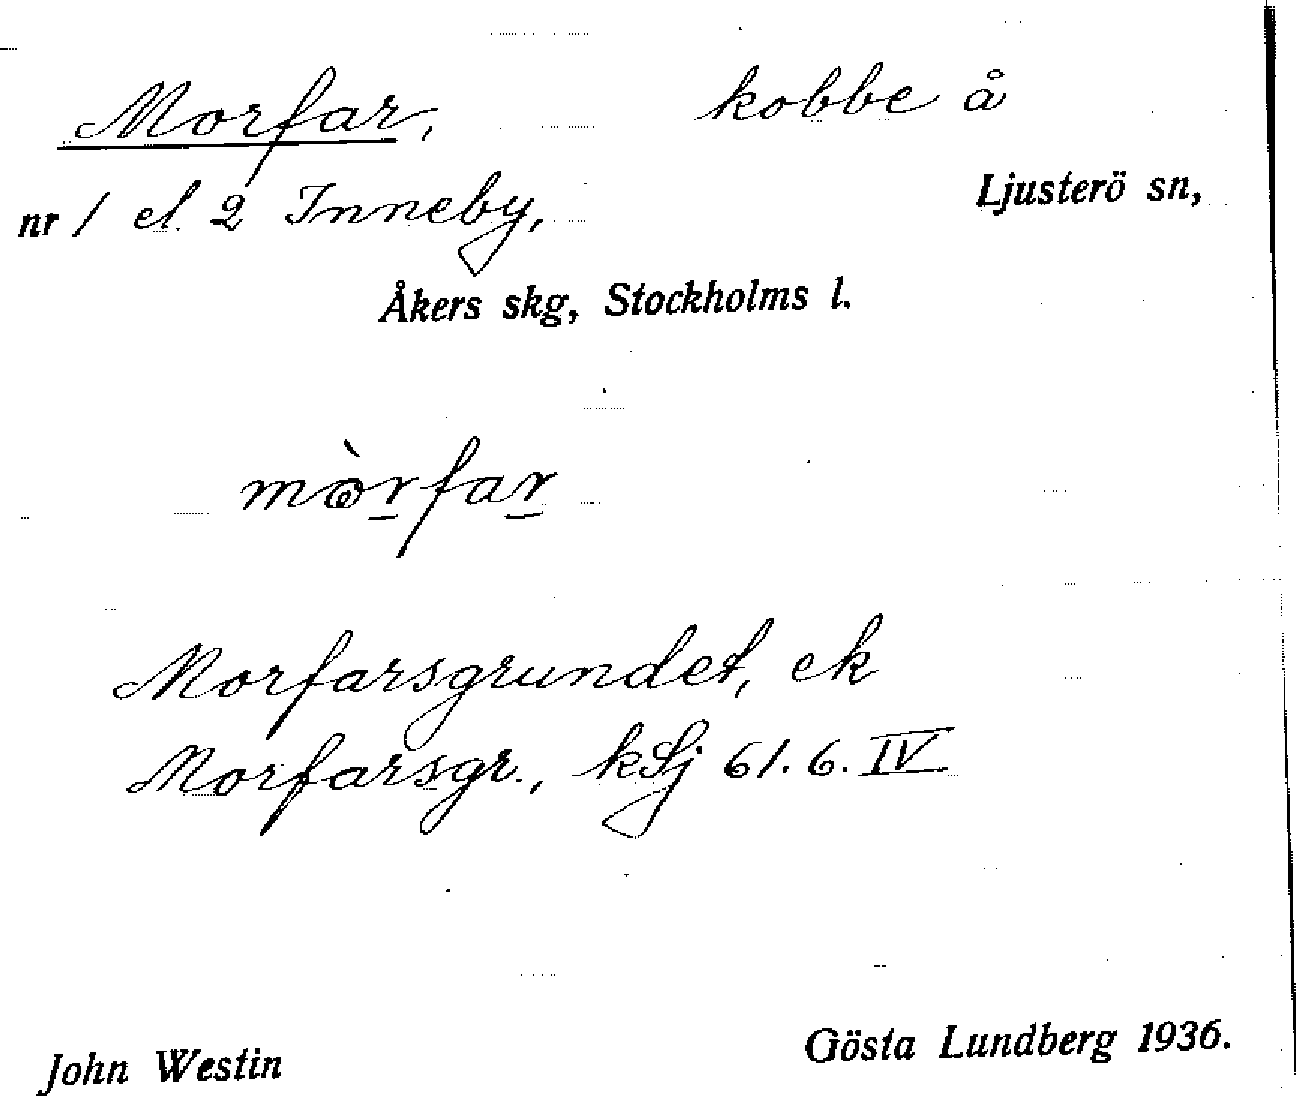 Morfar, kobbe å
nr 1 el. 2 Inneby, Ljusterö sn,
Åkers skg, Stockholms l.
mòrfar
Morfarsgrundet, ek
Morfarsgr., kSj 61.6.IV
John Westin Gösta Lundberg 1936.